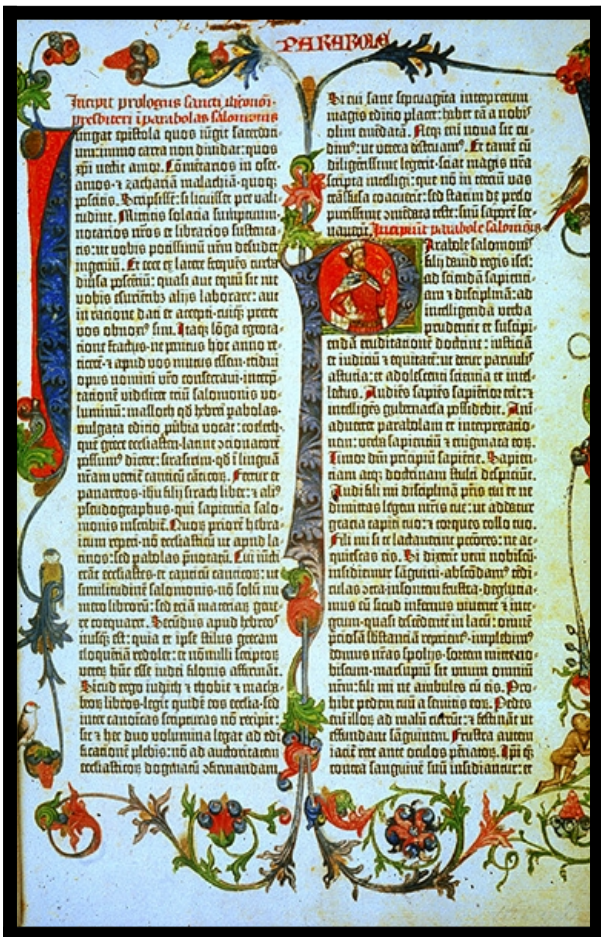 PARABOLE
Incipit prologus sancti iheronimi
presbiteri ī parabolas salomonis
Iungat epistola quos iūgit sacerdoti-
um: immo carta non dividat: quos
xpi nectit amor. Cōmētarios in osee.
amos. ⁊ zachariā malachiā. quoqƺ
poscitis. Scripsissē: si licuisset pre vali-
tudine. Mittitis solacia sumptuum.
notarios nr̄os et librarios sustenta-
tis: ut vobis potissimū nr̄m desudet
ingeniū. Et ecce ex latere frequēs turba
diversa poscētiū: quasi aut equū sit me
vobis esurientibƺ aliis laborare: aut
in ratione dati et accepti. cuiqƺ preter
vos obnoxiꝰ sim. Itaqƺ lōga egrota-
tione fractus. ne penitus hoc anno re-
ticerē. ⁊ apud vos mutus essem. tridui
opus nomini vr̄o consecravi. interp̄-
tationē videlicet triū salomonis vo-
luminū: masloth qd̄ hebrei parabolas.
vulgata editio ꝓverbia vocat: coeleth.
quē grece ecclesiasten. latine ↄcionatorē
possumꝰ dicere: sirasirim. qd̄ ī linguā
nr̄am vertit̄ canticū cāticoꝝ. Fertur et
panaretos. ihu filii sirach liber: ⁊ aliꝰ
pseudographus. qui sapientia salo-
monis inscribit̄. Quoꝝ priorē hebra-
icum reperi. nō ecclesiasticū ut apud la-
tinos: sed parabolas p̄notatū. Cui iūcti
erāt ecclesiastes. et canticū canticoꝝ: ut
similitudinē salomonis. nō solū nu-
mero librorū: sed etiā materiaꝝ gene-
re coequaret. Secūdus apud hebreos
nusqƺ est: quia et ipse stilus grecam
eloquētiā redolet: et nōnulli scriptoꝝ
veteꝝ hūc esse iudei filonis affirmāt.
Sicut ergo iudith ⁊ thobie ⁊ macha-
beoꝝ libros. legit quidē eos ecclesia. sed
inter canoicas scripturas nō recipit:
sic ⁊ hec duo volumina legat ad edi-
ficationē plebis: nō ad auctoritatem
ecclesiasticoꝝ dogmatū ↄfirmandam.
Si cui sane septuaginta interpretum
magis editio placet: habet eā a nobis
olim emēdatā. Neqƺ eni nova sic cu-
dimꝰ: ut vetera destruamꝰ. Et tamē cū
diligētissime legerit. sciat magis nr̄a
scripta intelligi: que nō in terciū vas
trāsfusa coacuerīt: sed statim de prelo
purissime ↄmēdata teste: suū saporē ser-
vaverīt. Incipiunt parabole salomōis
Parabole salomonis
filij david regis isrl̄:
ad sciendā sapienti-
am ⁊ disciplinā: ad
intelligenda verba
prudentie et suscipi-
endā eruditationē doctrine: iusticiā
et iudiciū ⁊ equitatē: ut detur parvulis
astutia: et adolescenti scientia et intel-
lectus. Audiēs sapiēs sapientior erit: ⁊
intelligēs gubernacla possidebit. Ani-
advertet parabolam et interpretatio-
nem: verba sapientiū ⁊ enigmata eoꝝ.
Timor dn̄i principiū sapiētie. Sapien-
tiam atqƺ doctrinam stulti despiciūt.
Audi fili mi disciplinā pr̄is tui et ne
dimittas legem mr̄is tue: ut addatur
gracia capiti tuo: ⁊ torques collo tuo.
Fili mi si te lactaverint pctōres: ne ac-
quiescas eis. Si dixerīt veni nobiscū.
insidiemur sanguini. abscōdamꝰ tēdi-
culas ↄtra insontem frustra. deglutia-
mus eū sicud infernus viventē ⁊ inte-
grum. quasi descēdentē in lacū: omnē
preciosā sbstantiā reperiemꝰ. implebimꝰ
domus nr̄as spoliis. sortem mitte no-
biscum. marsupiū sit unum omnium
nr̄m: fili mi ne ambules cū eis. Pro-
hibe pedem tuū a semitis eoꝝ. Pedes
eni illoꝝ ad malū currūt: ⁊ festināt ut
effundant sanguinem. Frustra autem
iacit̄ rete ante oculos pēnatoꝝ. Ipi qƺ
contra sanguinē suū insidiantur: et